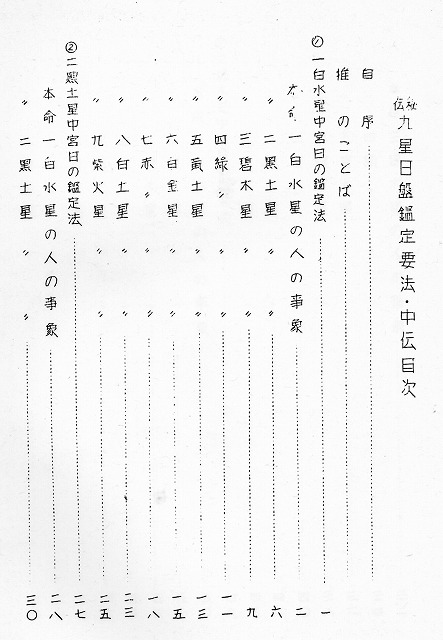 秘伝 九星日盤鑑定要法・中伝目次
自序
推のことば
① 一白水星中宮日の鑑定法 一
本命 一白水星の人の事象 二
〃 二黒土星 〃 〃 六
〃 三碧木星 〃 〃 九
〃 四緑〃 〃 〃 一一
〃 五黄土星 〃 〃 一三
〃 六白金星 〃 〃 一五
〃 七赤〃 〃 〃 一八
〃 八白土星 〃 〃 二三
〃 九紫火星 〃 〃 二五
② 二黒土星中宮日の鑑定法 二七
本命 一白水星の人の事象 二八
〃 二黒土星 〃 〃 三〇